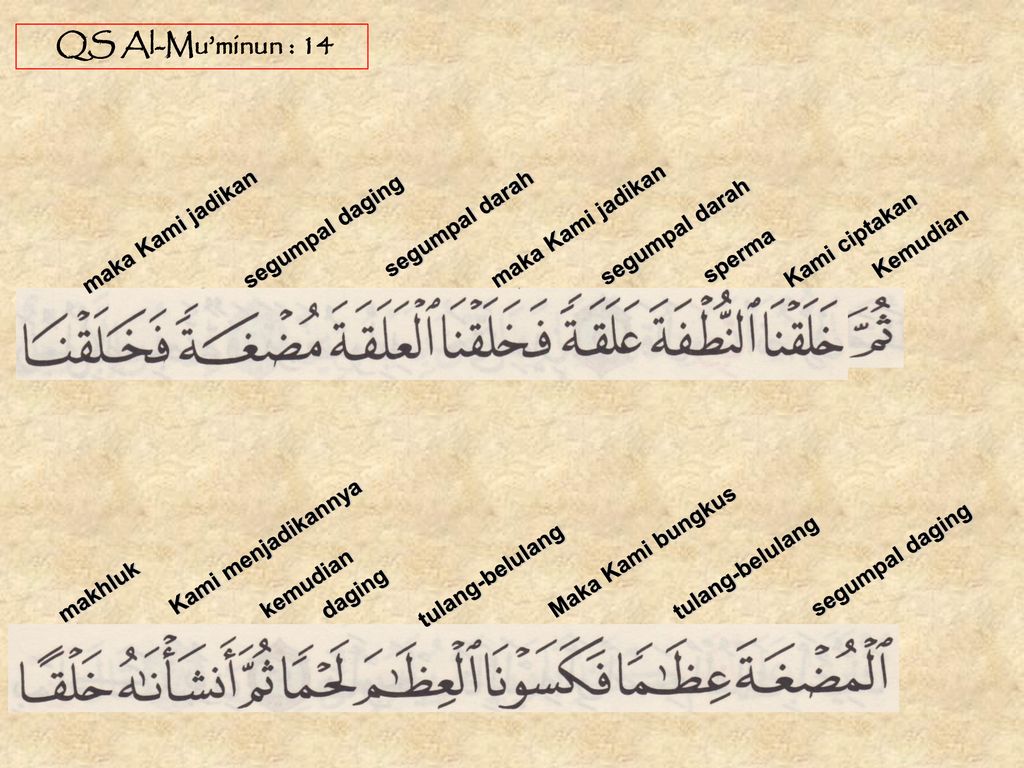 QS Al-Mu'minun : 14
Kemudian
Kami ciptakan
sperma
segumpal darah
maka Kami jadikan
segumpal darah
segumpal daging
maka Kami jadikan
ثُمَّ خَلَقْنَا ٱلنُّطْفَةَ عَلَقَةً فَخَلَقْنَا ٱلْعَلَقَةَ مُضْغَةً فَخَلَقْنَا
segumpal daging
tulang-belulang
Maka Kami bungkus
tulang-belulang
daging
kemudian
Kami menjadikannya
makhluk
ٱلْمُضْغَةَ عِظَٰمًا فَكَسَوْنَا ٱلْعِظَٰمَ لَحْمًا ثُمَّ أَنشَأْنَٰهُ خَلْقًا